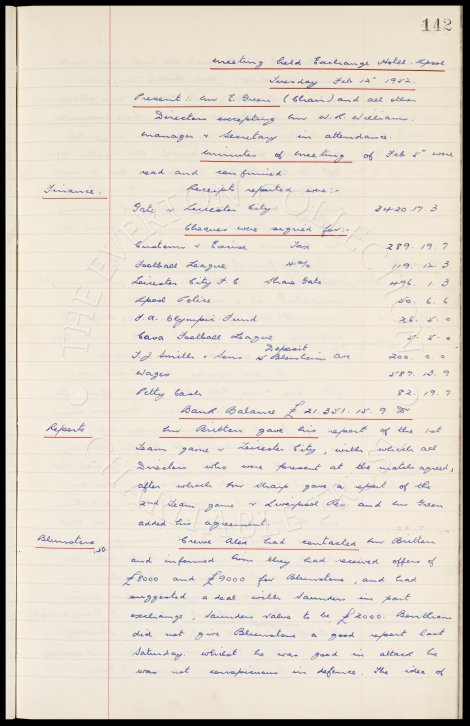 142
Meeting held Exchange Hotel. Lpool
Tuesday Feb 12th 1952.
Present: Mr E. Green (Chair) and all other
Directors excepting Mr W. R. Williams.
Manager & Secretary in attendance.
Minutes of meeting of Feb 5th were
read and confirmed
Finance. Receipts reported were:-
Gate v Leicester City 2420.17.3
Cheques were signed for:-
Customs & Excise Tax 289.19.7
Football League 4% 119.12.3
Leicester City F.C Share Gate 496.1.3
Lpool Police 50.6.6
F.A. Olympic Fund 26.5.0
Football League 5.5.0
Deposit
T.J Smith & Sons Blenheim Ave 200.0.0
Wages 587.13.9
Petty Cash 82.19.7
Bank Balance £21.351.15.9
Reports Mr Britton gave his report of the 1st
Team game v Leicester City, with which all
Directors who were present at the match agreed,
after which Mr Sharp gave a report of the
2nd Team game v Liverpool Res, and Mr Green
added his agreement.
Crewe Alex had contacted Mr Britton
and informed him they had received offers of
£8000 and £9000 for Blunstone, and had
suggested a deal with Saunders in part
exchange, Saunders value to be £2000.
did not give Blunstone a good report last
Saturday. whilst he was good in attack he
was not conspicuous in defence. The idea of
THE EVERTON COLLECTION